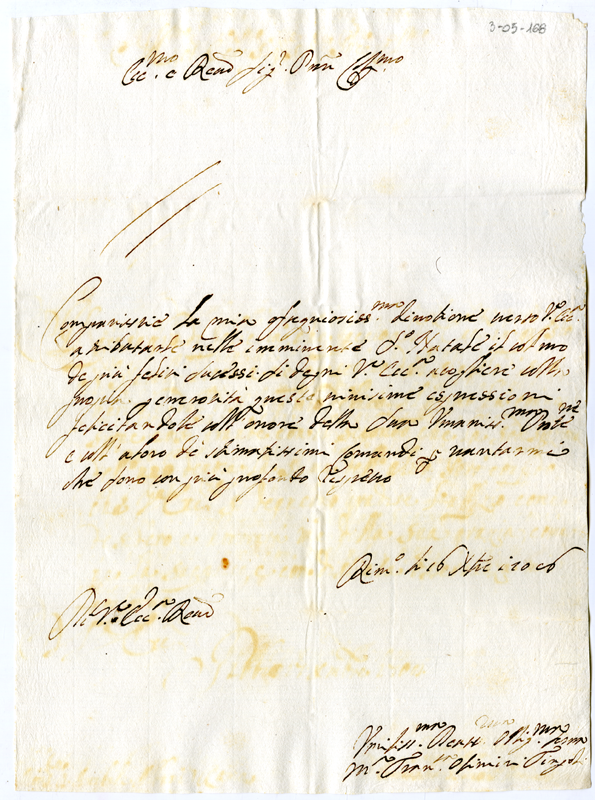 3-05-168
Ecc.mo e Rev.d Sig.r Pron Col.mo
Comparisce la mia osequiosiss.ma divotione verso V.a Ecc.a
a tributarle nelle imminente S.o Natale il colmo
de più felici sucessi. Si degni V.a Ecc.a acogliere colla
propria generosità queste minime espressioni
felicitandole coll'onore della sua
e coll' aloro de stimatissimi comandi p vantarmi
che sono con più profondo Rispetto
Rim.o li 16 Xbre
Di V.a Ecc.a Rev.d
Umiliss.mo Oblig.mo
M.a Fran.co Tingoli